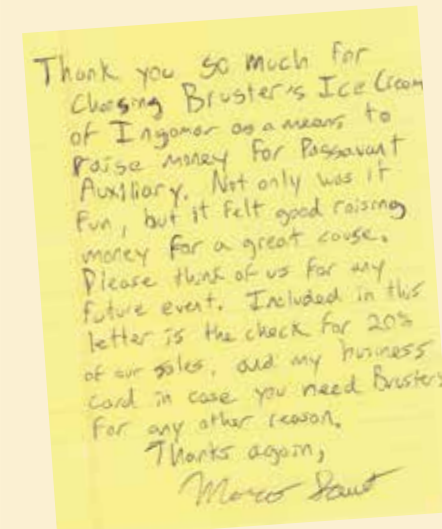 Thank you so much for
Choosing Bruster's Ice Cream
of Ingomar as a means to
raise money for Passavant
Auxiliary. Not only was it
fun, but it felt good raising
money for a great cause.
Please think of us for any
future event. Included in this
letter is the check for 20%
of our sales, and my business
card in case you need Bruster's
for any other reason.
Thanks again,
Marco